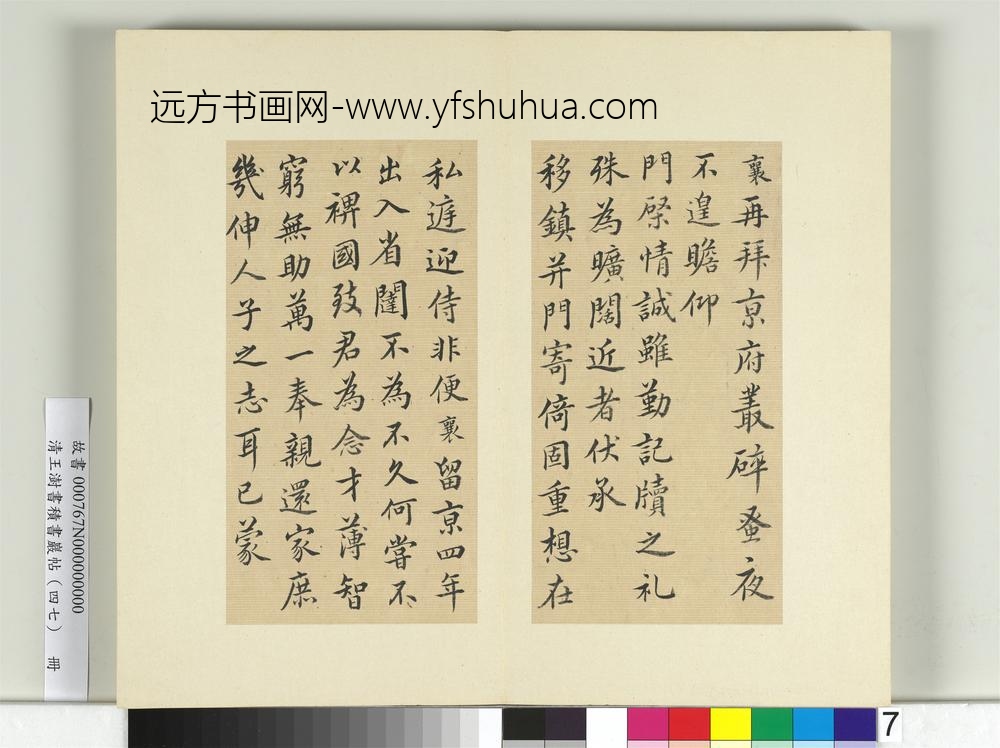 远方书画网-www.yfshuhua.com
襄再拜京府叢碎蚤夜
不遑瞻仰
門棨情誠雖勤記牘之礼
殊為曠闊近者伏承
移鎮并門寄倚固重想在
私庭迎侍非便襄留京四年
出入省闥不為不久何嘗不
以裨國致君為念才薄智
窮無助萬一奉親還家庶
幾伸人子之志耳已蒙
故書000767N000000000
清王澍書積書巖帖(四七) 冊
7